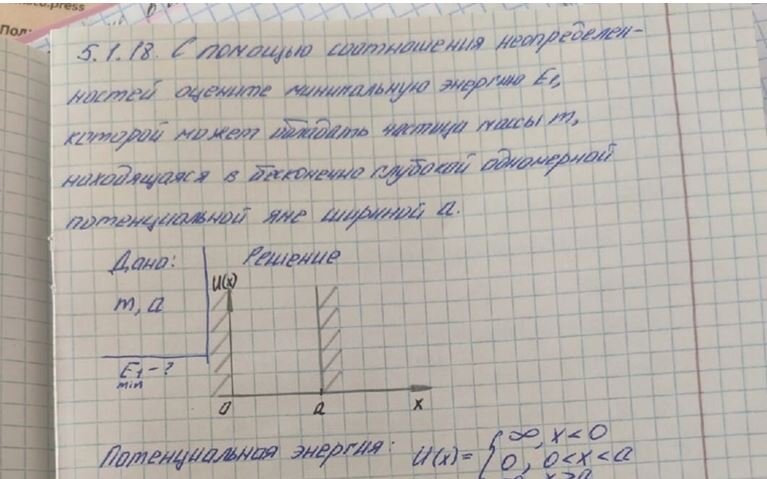 .press
Пол
5.1.18. С помощью соотношения неопределен-
ностей оцените минимальную энергию E1,
которой может обладать частица массы m,
находящаяся в бесконечно глубокой одномерной
потенциальной яме шириной a.
Дано: Решение
m, a
E1 - ?
min
U(x)
0 a x
Потенциальная энергия: U(x) = { ∞, x < 0
0, 0 < x < a
∞, x > a